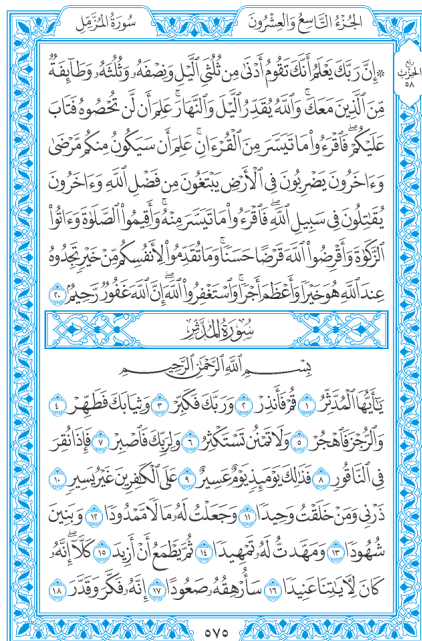 الجُزْءُ التَّاسِعُ وَالعِشْرُونَ
سُورَةُ المُزَّمِّلِ
۞ إِنَّ رَبَّكَ يَعْلَمُ أَنَّكَ تَقُومُ أَدْنَىٰ مِن ثُلُثَيِ ٱلَّيْلِ وَنِصْفَهُۥ وَثُلُثَهُۥ وَطَآئِفَةٌ
مِّنَ ٱلَّذِينَ مَعَكَۚ وَٱللَّهُ يُقَدِّرُ ٱلَّيْلَ وَٱلنَّهَارَۚ عَلِمَ أَن لَّن تُحْصُوهُ فَتَابَ
عَلَيْكُمْۖ فَٱقْرَءُوا۟ مَا تَيَسَّرَ مِنَ ٱلْقُرْءَانِۚ عَلِمَ أَن سَيَكُونُ مِنكُم مَّرْضَىٰ
وَءَاخَرُونَ يَضْرِبُونَ فِى ٱلْأَرْضِ يَبْتَغُونَ مِن فَضْلِ ٱللَّهِ وَءَاخَرُونَ
يُقَٰتِلُونَ فِى سَبِيلِ ٱللَّهِۖ فَٱقْرَءُوا۟ مَا تَيَسَّرَ مِنْهُۚ وَأَقِيمُوا۟ ٱلصَّلَوٰةَ وَءَاتُوا۟
ٱلزَّكَوٰةَ وَأَقْرِضُوا۟ ٱللَّهَ قَرْضًا حَسَنًاۚ وَمَا تُقَدِّمُوا۟ لِأَنفُسِكُم مِّنْ خَيْرٍ تَجِدُوهُ
عِندَ ٱللَّهِ هُوَ خَيْرًا وَأَعْظَمَ أَجْرًاۚ وَٱسْتَغْفِرُوا۟ ٱللَّهَۖ إِنَّ ٱللَّهَ غَفُورٌ رَّحِيمٌۢ ٢٠
رُبع الحِزْب ٥٨
سُورَةُ المُدَّثِّرِ
بِسْمِ ٱللَّهِ ٱلرَّحْمَٰنِ ٱلرَّحِيمِ
يَٰٓأَيُّهَا ٱلْمُدَّثِّرُ ١ قُمْ فَأَنذِرْ ٢ وَرَبَّكَ فَكَبِّرْ ٣ وَثِيَابَكَ فَطَهِّرْ ٤
وَٱلرُّجْزَ فَٱهْجُرْ ٥ وَلَا تَمْنُن تَسْتَكْثِرُ ٦ وَلِرَبِّكَ فَٱصْبِرْ ٧ فَإِذَا نُقِرَ
فِى ٱلنَّاقُورِ ٨ فَذَٰلِكَ يَوْمَئِذٍ يَوْمٌ عَسِيرٌ ٩ عَلَى ٱلْكَٰفِرِينَ غَيْرُ يَسِيرٍ ١٠
ذَرْنِى وَمَنْ خَلَقْتُ وَحِيدًا ١١ وَجَعَلْتُ لَهُۥ مَالًا مَّمْدُودًا ١٢ وَبَنِينَ
شُهُودًا ١٣ وَمَهَّدتُّ لَهُۥ تَمْهِيدًا ١٤ ثُمَّ يَطْمَعُ أَنْ أَزِيدَ ١٥ كَلَّآۖ إِنَّهُۥ
كَانَ لِءَايَٰتِنَا عَنِيدًا ١٦ سَأُرْهِقُهُۥ صَعُودًا ١٧ إِنَّهُۥ فَكَّرَ وَقَدَّرَ ١٨
٥٧٥